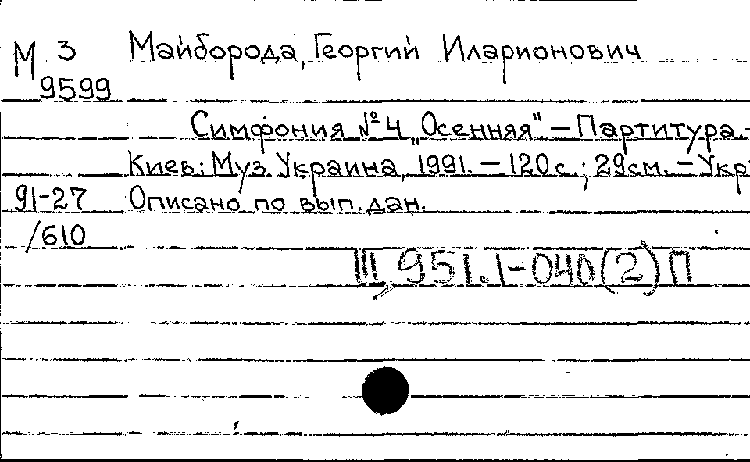 М 3 Майборода, Георгий Иларионович
9599
Симфония №4 „Осенняя" – Партитура. –
Киев: Муз. Украина, 1991. – 120 с.; 29 см. – Укр
91-27 Описано по вып. дан.
/610
III, 951.1-040(2)П